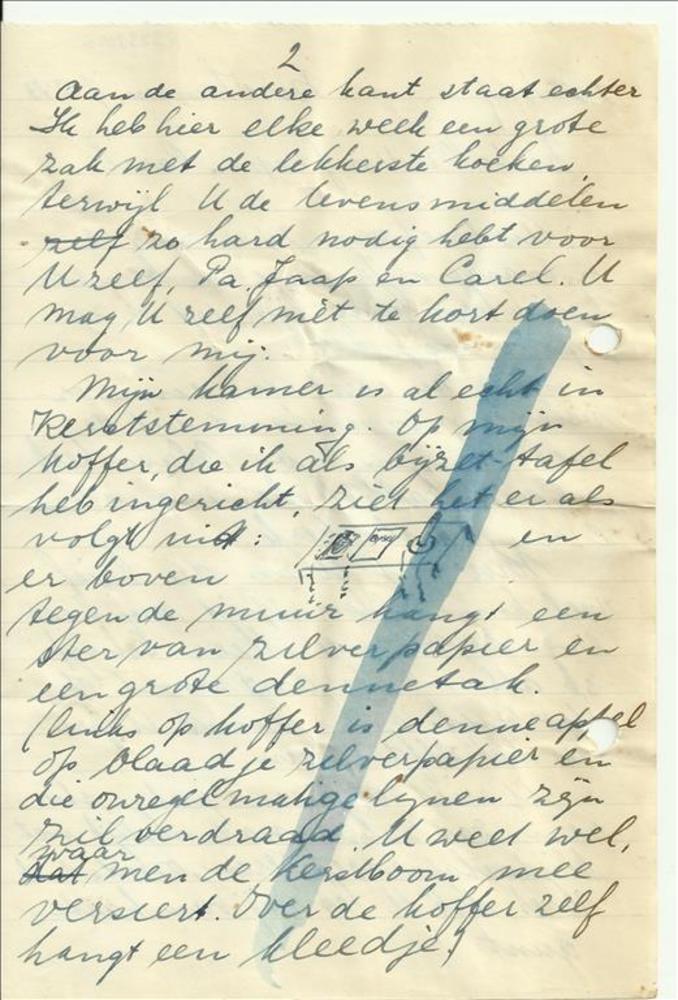 2
Aan de andere kant staat echter
Ik heb hier elke week een grote
zak met de lekkerste koeken,
terwijl U de levensmiddelen
zelf zo hard nodig hebt voor
Uzelf, Pa. Jaap en Carel. U
mag U zelf niet te kort doen
voor mij.
Mijn kamer is al echt in
Kerststemming. Op mijn
koffer, die ik als bijzet-tafel
heb ingericht, ziet het er als
volgt uit: en
er boven
tegen de muur hangt een
ster van zilverpapier en
een grote dennetak.
(links op koffer is denneappel
op blaadje zilverpapier en
die onregelmatige lijnen zijn
zilverdraad. U weet wel,
waar
dat men de kerstboom mee
versiert. Over de koffer zelf
hangt een kleedje.)